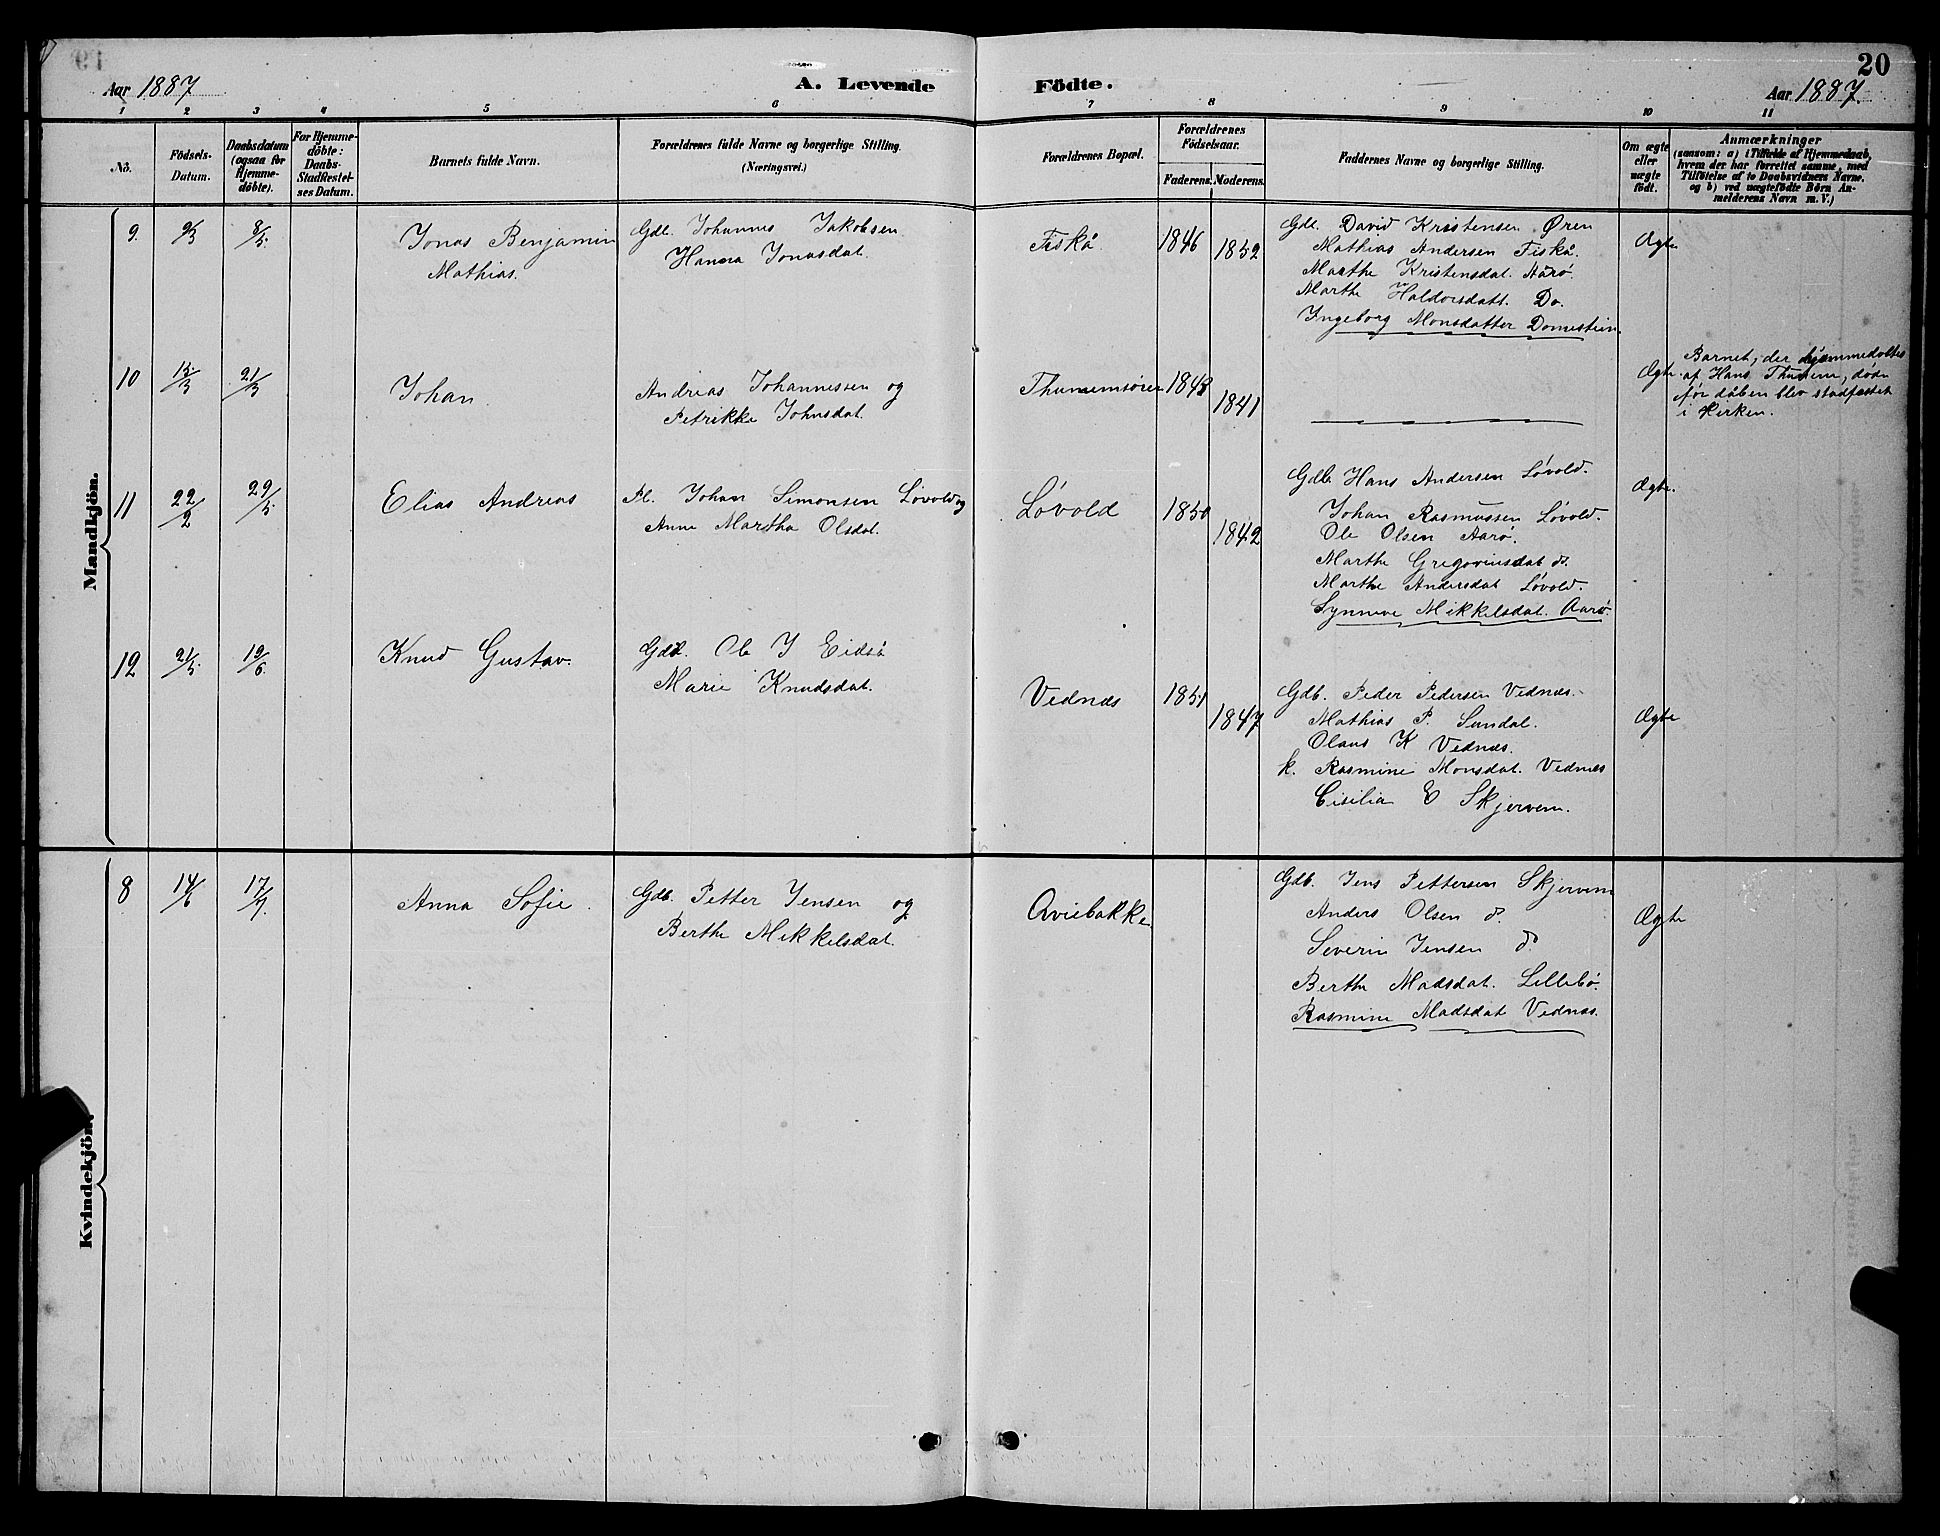 20
Aar 1887
A. Levende Födte.
Aar 1887.
1 2 3 4 5 6 7 8 9 10 11
No.
Födsels-
Datum.
Daabsdatum
(ogsaa for
Hjemme-
döbte).
For Hjemme-
döbte:
Daabs-
Stadfæstel-
ses Datum.
Barnets fulde Navn.
Forældrenes fulde Navne og borgerlige Stilling.
(Næringsvei.)
Forældrenes Bopæl.
Forældrenes
Födselsaar.
Faderens. Moderens.
Faddernes Navne og borgerlige Stilling.
Om ægte
eller
uægte
födt.
Anmærkninger
(saasom: a) i Tilfælde af Hjemmedaab,
hvem der har forrettet samme, med
Tilföielse af to Daabsvidners Navne.
og b) ved uægtefödte Börn An-
melderens Navn m. V.)
Mandkjön.
9. 9/3 8/5.
Jonas Benjamin
Mathias.
Gdb. Johannes Jakobsen
Hanna Jonasdat.
Fiskå
1846
1852
Gdb. David Kristensen Øren
Mathias Andersen Fiskå.
Marthe Kristensdat. Aarø.
Marthe Haldorsdatt. Do.
Ingeborg Monsdatter Domestein.
Ægte
10 15/3 21/3
Johan.
Andreas Johannessen og
Petrikke Johnsdat.
1848
1841
Ægte.
Barnet, der hjemmedøbtes
af Hans Thunem, døde
før dåben blev stadfæstet
i Kirken.
11 22/2 29/5.
Elias Andreas
Pl. Johan Simonsen Løvold og
Anne Martha Olsdat.
Løvold
1850
1842
Gdb Hans Andersen Løvold.
Johan Rasmussen Løvold.
Ole Olsen Aarø.
Marthe Gregoriusdat do.
Marthe Andersdat Løvold.
Synneve Mikkelsdat. Aarø.
Ægte.
12 21/5. 19/6.
Knud Gustav.
Gdb. Ole I Eidså
Marie Knudsdat.
Vednæs
1851
1847
Gdb. Peder Pedersen Vednæs.
Mathias P. Sundal.
Olaus K Vednæs.
k. Rasmine Monsdat. Vednæs
Cisilia E Skjervem.
Ægte
Kvindekjön.
8 14/6 17/7.
Anna Sofie.
Gdb. Petter Jensen og
Berthe Mikkelsdat.
Qviebakke
Gdb. Jens Pettersen Skjervem
Anders Olsen do.
Severin Jensen do.
Berthe Madsdat. Lillebø.
Rasmine Madsdat Vednæs.
Ægte